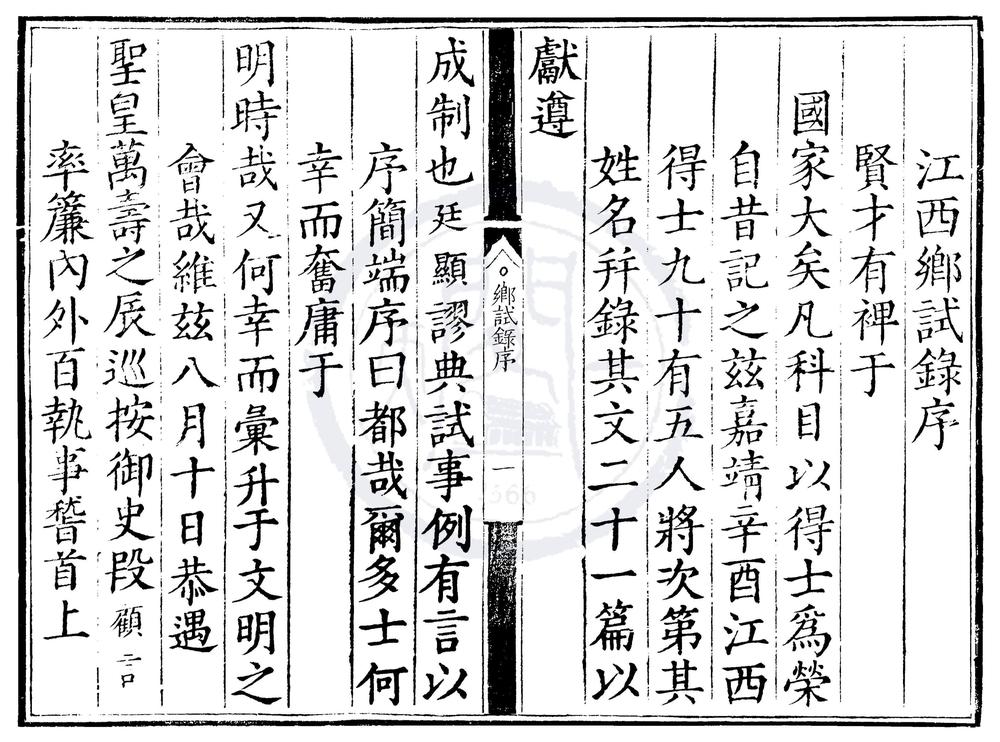 江西鄉試錄序
賢才有裨于
國家大矣凡科目以得士爲榮
自昔記之茲嘉靖辛酉江西
得士九十有五人將次第其
姓名幷錄其文二十一篇以
獻遵
鄉試錄序
一
成制也廷顯謬典試事例有言以
序簡端序曰都哉爾多士何
幸而奮庸于
明時哉又何幸而彙升于文明之
會哉維茲八月十日恭遇
聖皇萬壽之辰巡按御史段顧言
率簾內外百執事稽首上